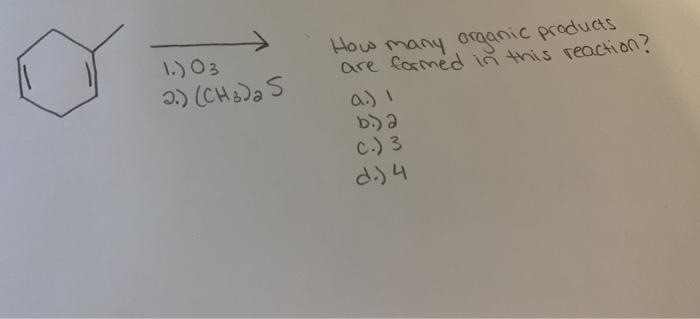 How many organic products
are formed in this reaction?
1.) O3
2.) (CH3)2S
a.) 1
b.) 2
c.) 3
d.) 4